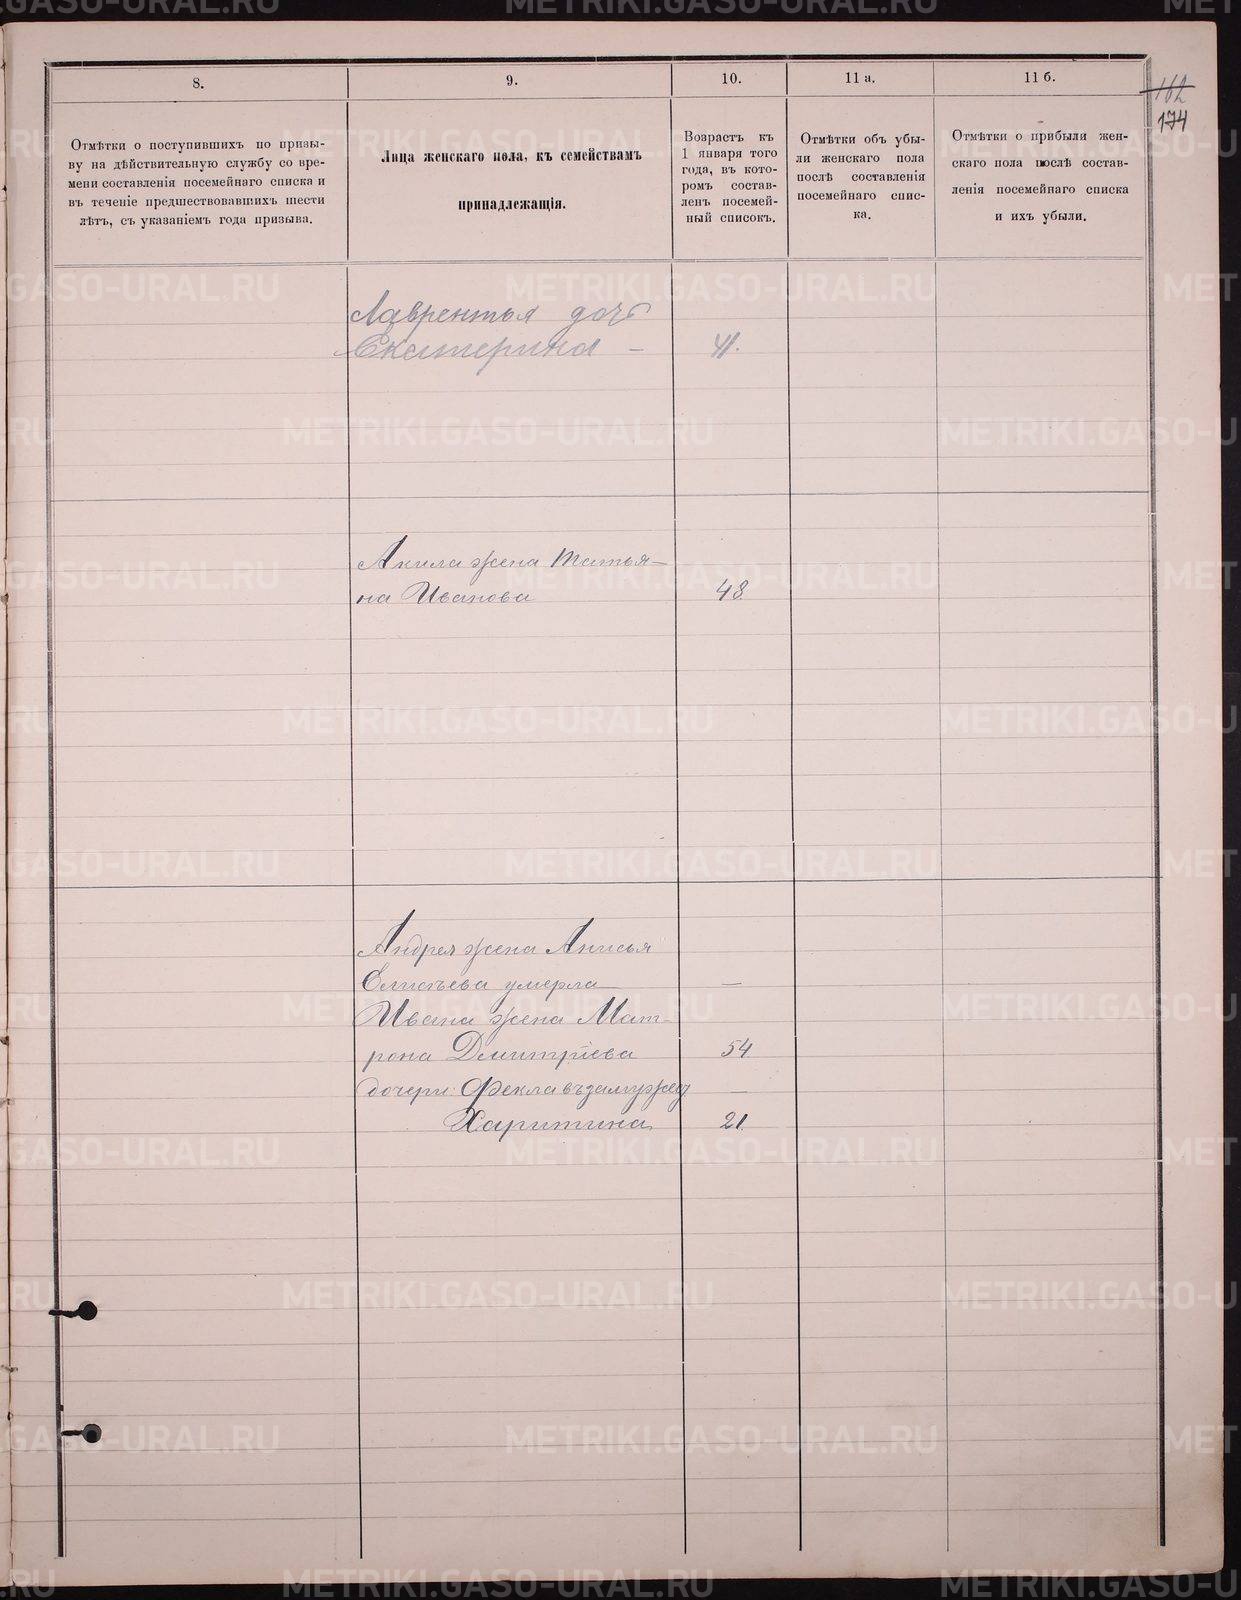 162
174
8.
9.
10.
11 а.
11 б.
Отмѣтки о поступившихъ по призы-
ву на дѣйствительную службу со вре-
мени составленія посемейнаго списка и
въ теченіе предшествовавшихъ шести
лѣтъ, съ указаніемъ года призыва.
Лица женскаго пола, къ семействамъ
принадлежащія.
Возрастъ къ
1 января того
года, въ кото-
ромъ состав-
ленъ посемей-
ный списокъ.
Отмѣтки объ убы-
ли женскаго пола
послѣ составленія
посемейнаго спис-
ка.
Отмѣтки о прибыли жен-
скаго пола послѣ состав-
ленія посемейнаго списка
и ихъ убыли.
Лаврентья дочь
Екатерина – 41.
Акила жена Татья-
на Иванова 48
Андрея жена Анисья
Елисѣева умерла —
Ивана жена Мат-
рона Дмитріева 54
дочери Фекла въ замужед —
Харитина 21
METRIKI.GASO-URAL.RU